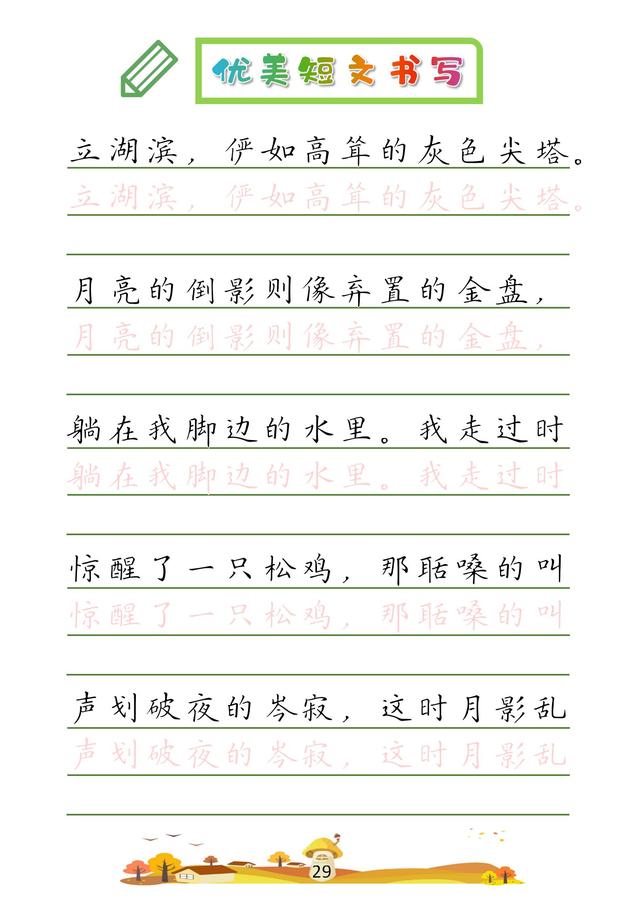 优美短文书写
立湖滨，俨如高耸的灰色尖塔。
立湖滨，俨如高耸的灰色尖塔。
月亮的倒影则像弃置的金盘，
月亮的倒影则像弃置的金盘，
躺在我脚边的水里。我走过时
躺在我脚边的水里。我走过时
惊醒了一只松鸡，那聒嗓的叫
惊醒了一只松鸡，那聒嗓的叫
声划破夜的岑寂，这时月影乱
声划破夜的岑寂，这时月影乱
29